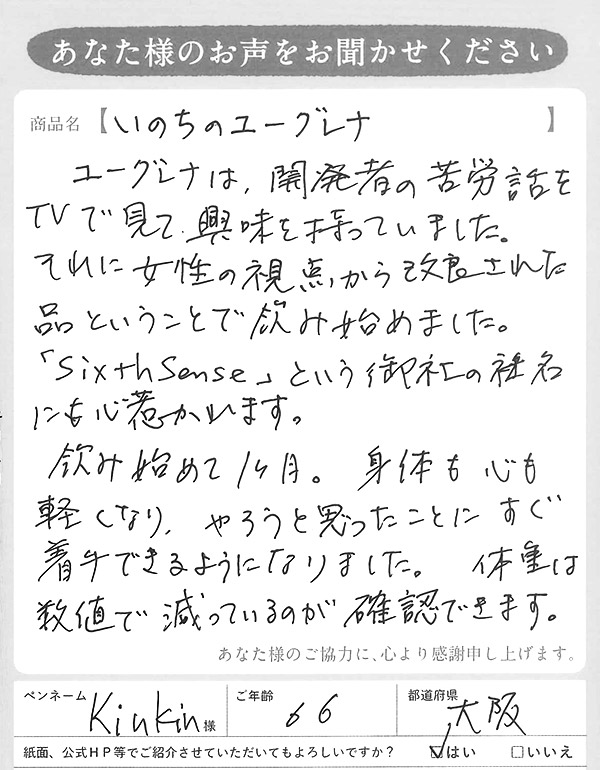 あなた様のお声をお聞かせください
商品名【いのちのユーグレナ】
ユーグレナは、開発者の苦労話を
TVで見て、興味を持っていました。
それに女性の視点から改良された
品ということで飲み始めました。
「SixthSense」という御社の社名
にも心惹かれます。
飲み始めて1ヶ月。身体も心も
軽くなり、やろうと思ったことにすぐ
着手できるようになりました。体重は
数値で減っているのが確認できます。
あなた様のご協力に、心より感謝申し上げます。
ペンネーム Kinkin様 ご年齢 66 都道府県 大阪
紙面、公式HP等でご紹介させていただいてもよろしいですか? ☑はい □いいえ